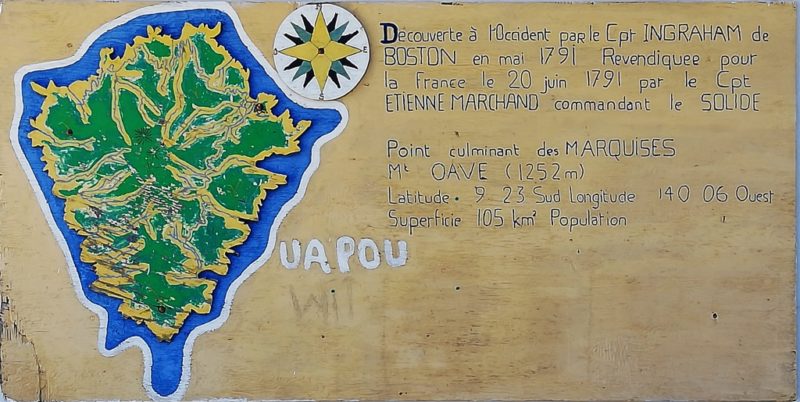 Découverte à l'Occident par le Cpt INGRAHAM de
BOSTON en mai 1791 Revendiquee pour
la France le 20 juin 1791 par le Cpt
ETIENNE MARCHAND commandant le SOLIDE
Point culminant des MARQUISES
Mt OAVE (1252m)
Latitude. 9 23 Sud Longitude 140 06 Ouest
Superficie 105 km² Population
UAPOU